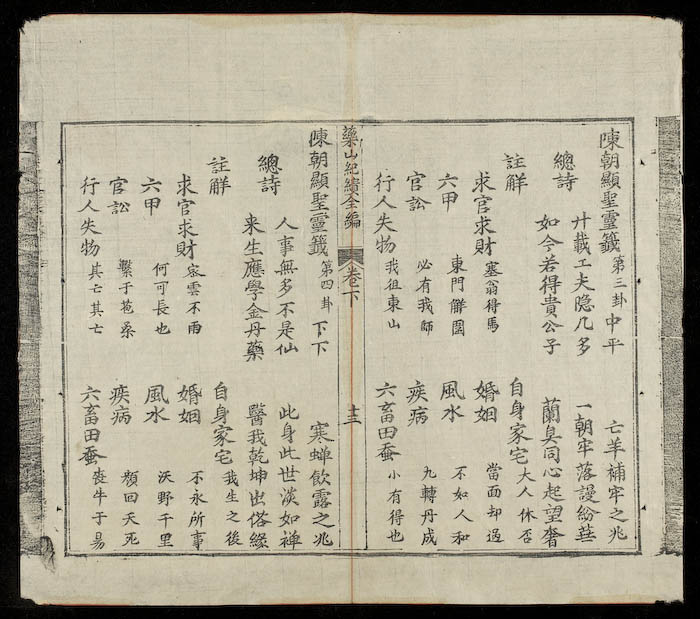 陳朝顯聖靈籤 第三卦 中平 亡羊補牢之兆
總詩 廿載工夫隐几多 一朝牢落謾紛華
如今若得貴公子 蘭臭同心起望奢
註解 自身家宅 大人休否
求官求財 塞翁得馬 婚姻 當面却過
六甲 東門解圍 風水 不如人和
官訟 必有我師 疾病 九轉丹成
行人失物 我徂東山 六畜田蚕 小有得也
藥山紀績全編 卷下 十三
陳朝顯聖靈籤 第四卦 下下 寒蝉飲露之兆
總詩 人事無多不是仙 此身此世淡如禅
来生應學金丹藥 醫我乾坤出俗緣
註解 自身家宅 我生之後
求官求財 密雲不雨 婚姻 不永所事
六甲 何可長也 風水 沃野千里
官訟 繫于苞桑 疾病 顏回夭死
行人失物 其亡其亡 六畜田蚕 喪牛于易